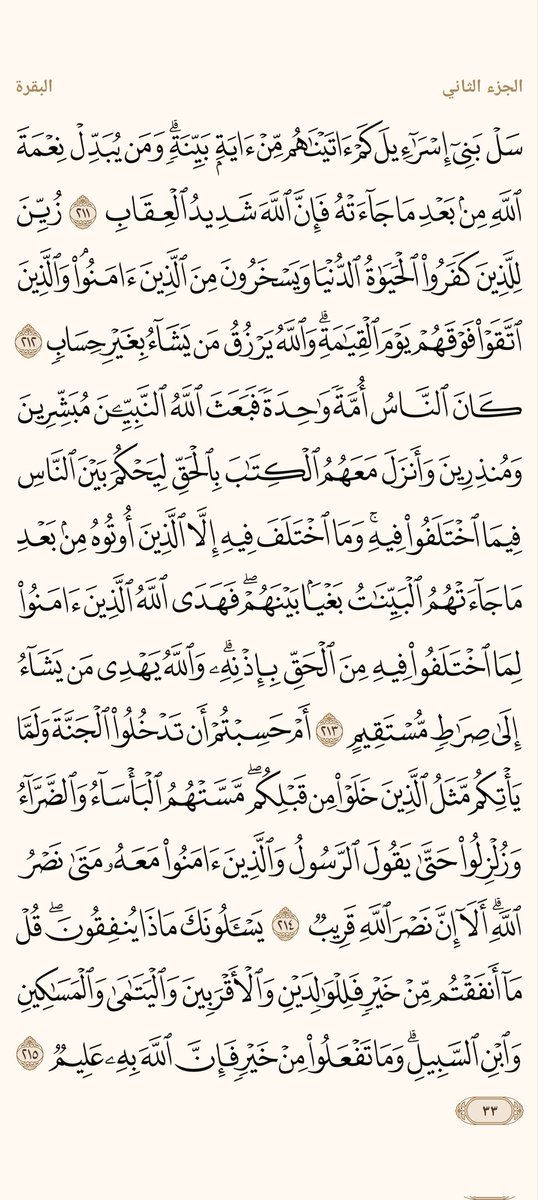 الجزء الثاني
البقرة
سَلۡ بَنِيٓ إِسۡرَٰٓءِيلَ كَمۡ ءَاتَيۡنَٰهُم مِّنۡ ءَايَةِۭ بَيِّنَةٖۗ وَمَن يُبَدِّلۡ نِعۡمَةَ
ٱللَّهِ مِنۢ بَعۡدِ مَا جَآءَتۡهُ فَإِنَّ ٱللَّهَ شَدِيدُ ٱلۡعِقَابِ ٢١١ زُيِّنَ
لِلَّذِينَ كَفَرُواْ ٱلۡحَيَوٰةُ ٱلدُّنۡيَا وَيَسۡخَرُونَ مِنَ ٱلَّذِينَ ءَامَنُواْۘ وَٱلَّذِينَ
ٱتَّقَوۡاْ فَوۡقَهُمۡ يَوۡمَ ٱلۡقِيَٰمَةِۗ وَٱللَّهُ يَرۡزُقُ مَن يَشَآءُ بِغَيۡرِ حِسَابٖ ٢١٢
كَانَ ٱلنَّاسُ أُمَّةٗ وَٰحِدَةٗ فَبَعَثَ ٱللَّهُ ٱلنَّبِيِّـۧنَ مُبَشِّرِينَ
وَمُنذِرِينَ وَأَنزَلَ مَعَهُمُ ٱلۡكِتَٰبَ بِٱلۡحَقِّ لِيَحۡكُمَ بَيۡنَ ٱلنَّاسِ
فِيمَا ٱخۡتَلَفُواْ فِيهِۚ وَمَا ٱخۡتَلَفَ فِيهِ إِلَّا ٱلَّذِينَ أُوتُوهُ مِنۢ بَعۡدِ
مَا جَآءَتۡهُمُ ٱلۡبَيِّنَٰتُ بَغۡيَۢا بَيۡنَهُمۡۖ فَهَدَى ٱللَّهُ ٱلَّذِينَ ءَامَنُواْ
لِمَا ٱخۡتَلَفُواْ فِيهِ مِنَ ٱلۡحَقِّ بِإِذۡنِهِۦۗ وَٱللَّهُ يَهۡدِي مَن يَشَآءُ
إِلَىٰ صِرَٰطٖ مُّسۡتَقِيمٍ ٢١٣ أَمۡ حَسِبۡتُمۡ أَن تَدۡخُلُواْ ٱلۡجَنَّةَ وَلَمَّا
يَأۡتِكُم مَّثَلُ ٱلَّذِينَ خَلَوۡاْ مِن قَبۡلِكُمۖ مَّسَّتۡهُمُ ٱلۡبَأۡسَآءُ وَٱلضَّرَّآءُ
وَزُلۡزِلُواْ حَتَّىٰ يَقُولَ ٱلرَّسُولُ وَٱلَّذِينَ ءَامَنُواْ مَعَهُۥ مَتَىٰ نَصۡرُ
ٱللَّهِۗ أَلَآ إِنَّ نَصۡرَ ٱللَّهِ قَرِيبٞ ٢١٤ يَسۡـَٔلُونَكَ مَاذَا يُنفِقُونَۖ قُلۡ
مَآ أَنفَقۡتُم مِّنۡ خَيۡرٖ فَلِلۡوَٰلِدَيۡنِ وَٱلۡأَقۡرَبِينَ وَٱلۡيَتَٰمَىٰ وَٱلۡمَسَٰكِينِ
وَٱبۡنِ ٱلسَّبِيلِۗ وَمَا تَفۡعَلُواْ مِنۡ خَيۡرٖ فَإِنَّ ٱللَّهَ بِهِۦ عَلِيمٞ ٢١٥
٣٣